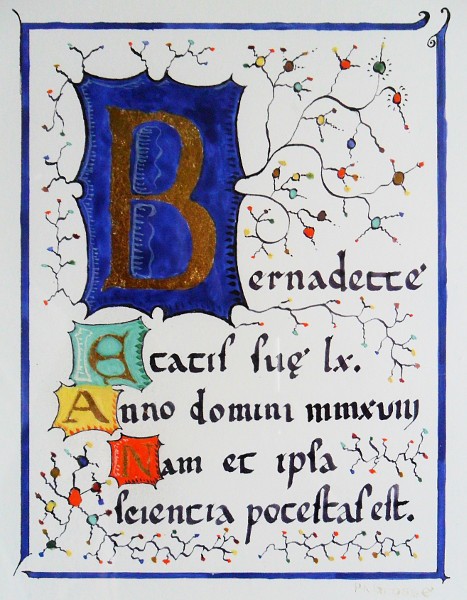 Bernadette
Etatiſ ſuę lx.
Anno domini mmxviij
Nam et ipſa
ſcientia poteſtaſ eſt.